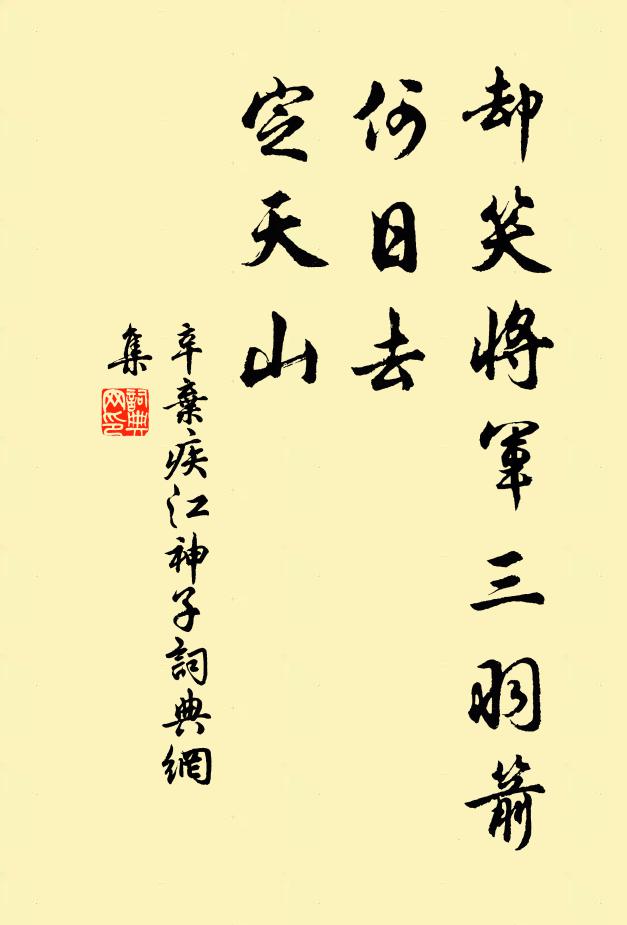 却笑將軍三羽箭
何日去
定天山
辛棄疾江神子詞典網
集
詞典
网印